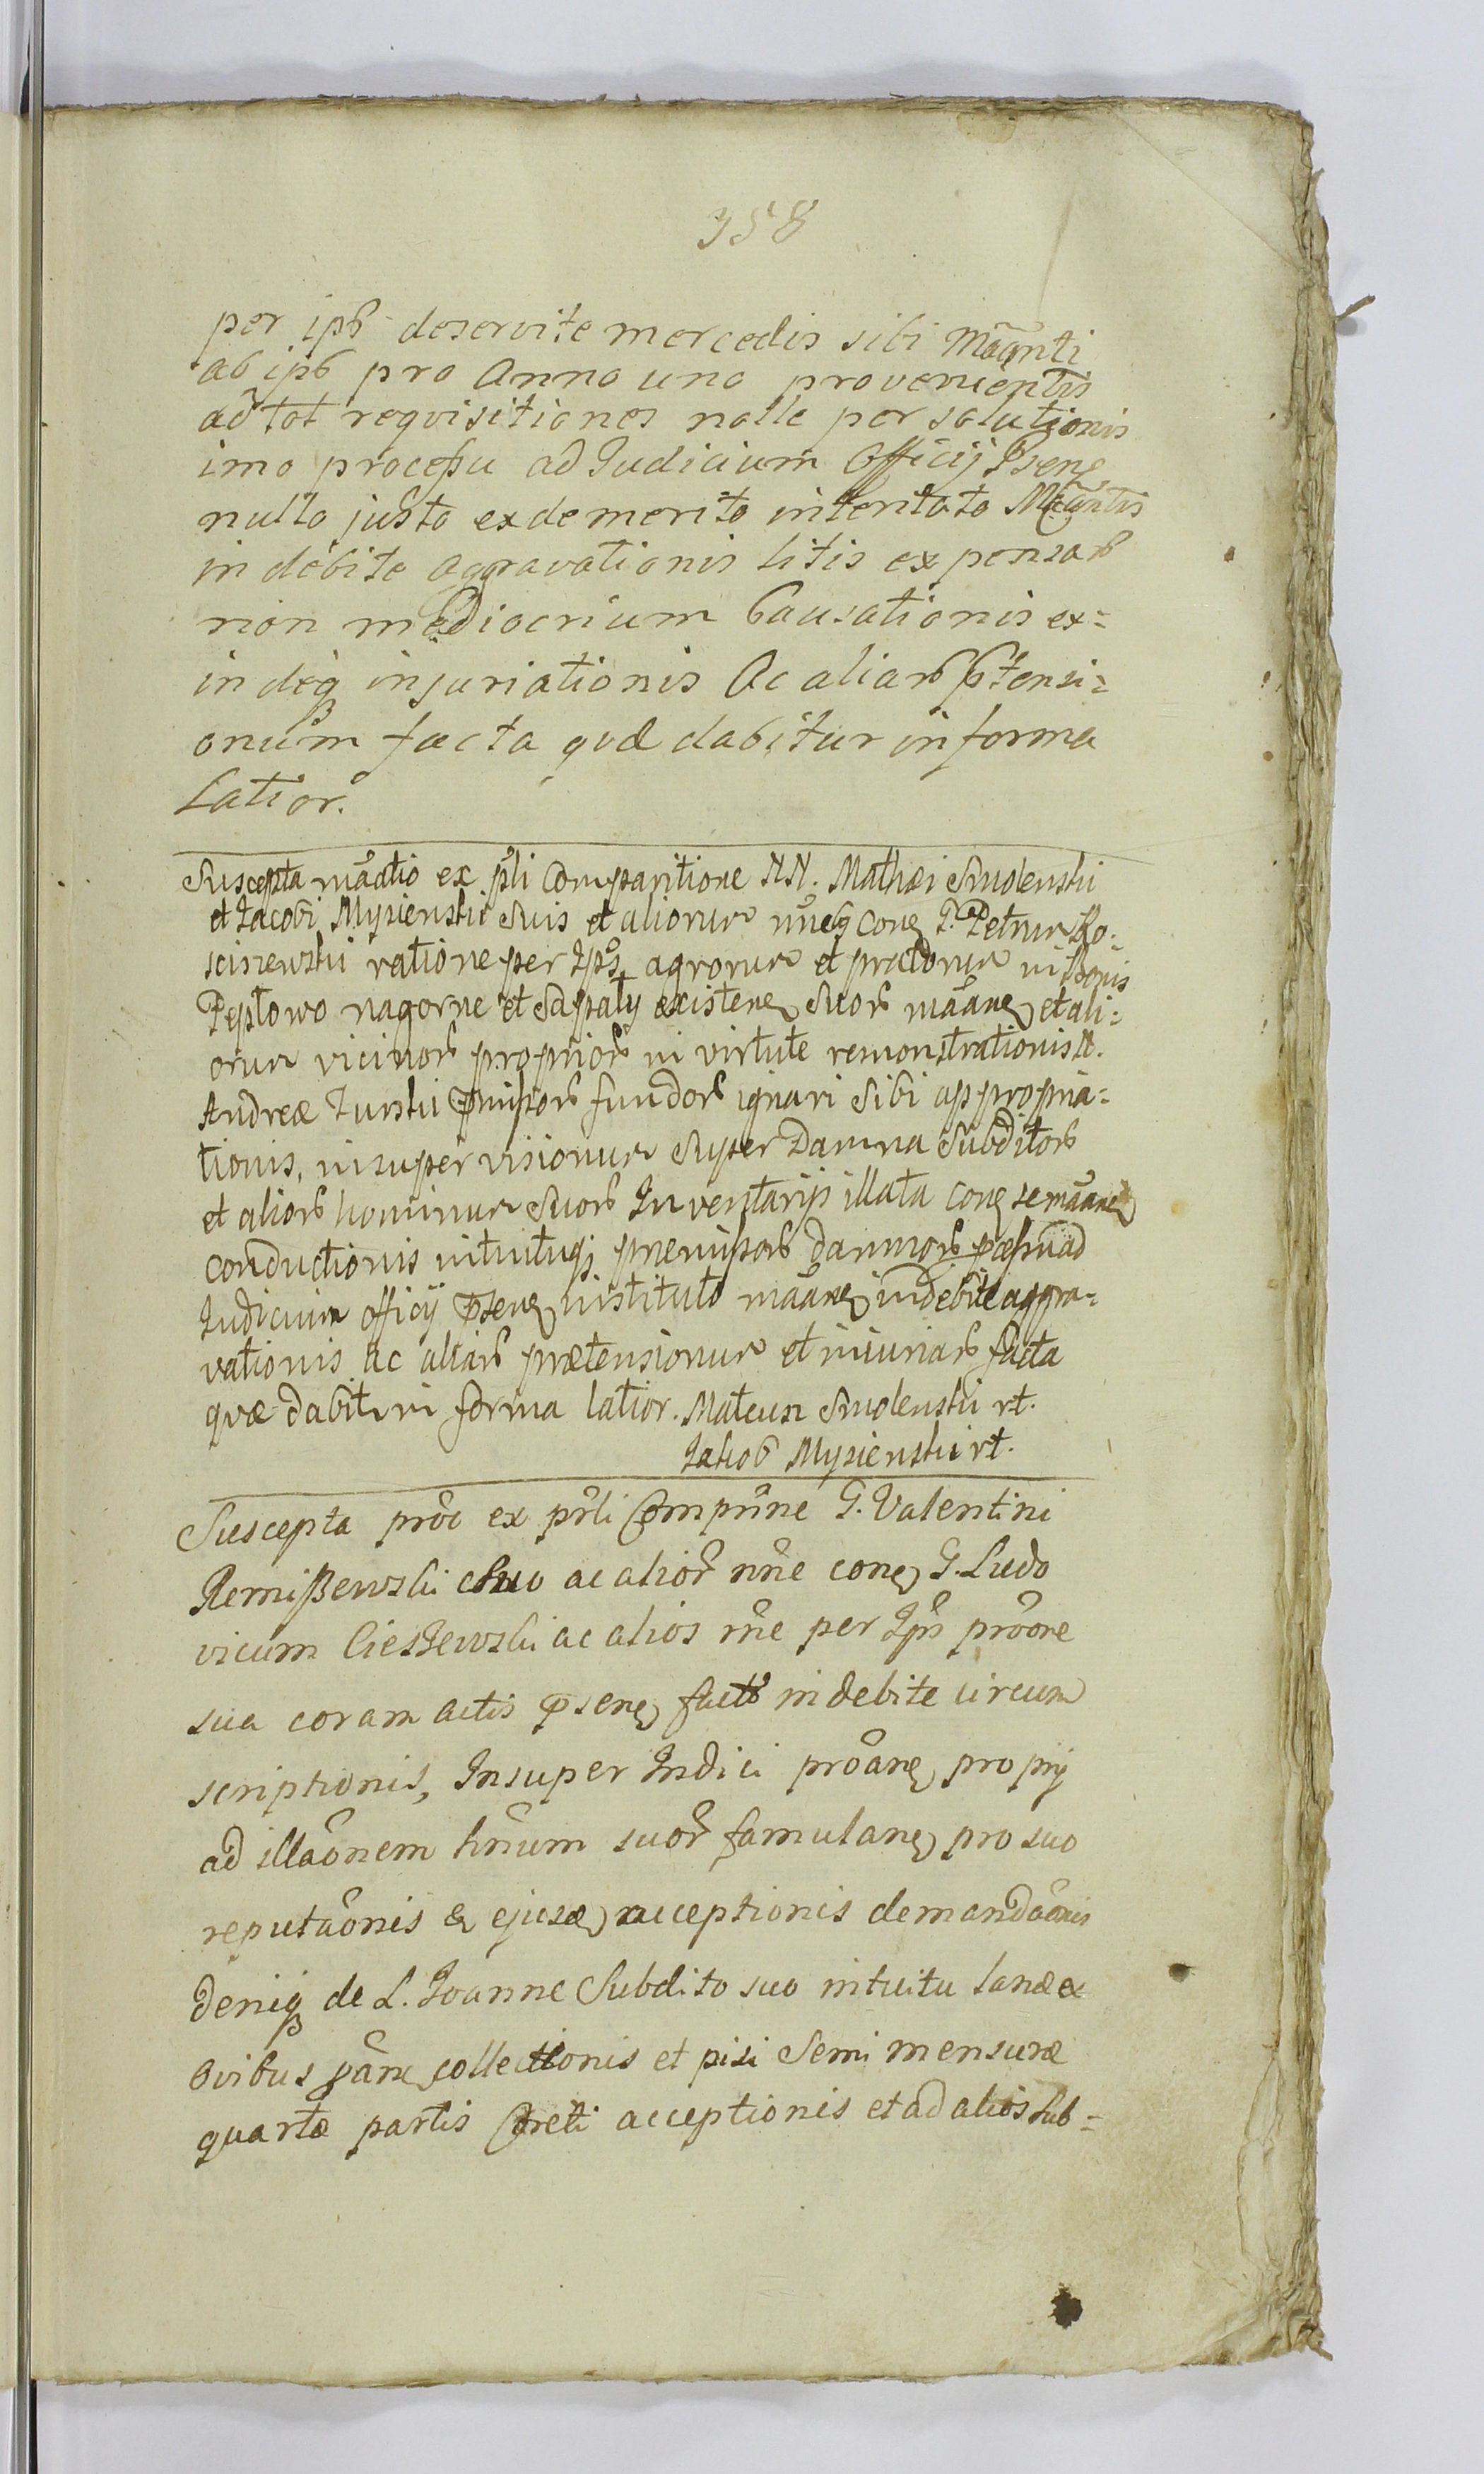 358
per ipŝ deservite mercedis sibi Mãnti
ab ipŝ pro Anno uno provenientis
ad tot reqvisitiones nolle persolutionis
imo processu ad Judicium Officij Psenꝫ
nullo justo ex demerito intentato Mãntis
indebite aggravationis litis expensarũ
non mediocrium Causationis ex=
indeqꝫ injuriationis Ac aliarũ ptensi=
onum facta qvæ dabitur in forma
Latior.
Suscepta mãatio ex pĩli Comparitione NN. Mathæi Smolenski
et Jacobi Mysienski Suis et aliorum nñe cong G. Petrum Ko=
sciszewski ratione per Ips̃ agrorum et pratorum in Bonis
Peptowo nagorne et Saspaly existenꝫ Suorũ mãanꝫ et ali=
orum vicinorũ propriorũ in virtute remonstrationis N.
Andreæ Turski pmissorũ fundorũ ignari Sibi appropria=
tionis, insuper visionum Super Damna Subditorũ
et aliorũ hominum Suorũ Inventarijs illata cong se mãanꝫ
conductionis intuituqꝫ præmissorũ damnorũ pcessu ad
Judicium officij psenꝫ instituto mãanꝫ indebite aggra=
vationis ac aliarũ prætensionum et injuriarũ facta
qvæ dabitur in forma latior. Mateusz Smolenski rt.
Jakob Mysienski rt.
Suscepta prõc ex pr̃li Comprñne G. Valentini
Remiszewski suo ac aliorũ nñe cong G. Ludo
vicum Cieszewski ac alios rñe per Ips̃ prõone
sua coram actis psenꝫ facto indebite circum
scriptionis, Insuper Indici prõanꝫ proprij
ad illãonem hñium suorũ famulanꝫ pro suo
reputãonis & ejusdꝫ acceptionis demandãonis
deniqꝫ de L. Joanne Subdito suo intuitu lanæ ex
Ovibus collectionis et pisi Semi mensuræ
quartæ partis Streti acceptionis et ad alios sub=